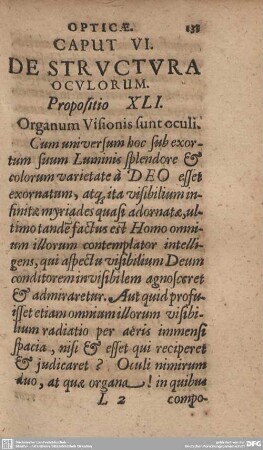 OPTICÆ. 133
CAPUT VI.
DE STRVCTVRA
OCVLORUM.
Propositio XLI.
Organum Visionis sunt oculi.
Cum universum hoc sub exor-
tum suum Luminis splendore &
colorum varietate à DEO esset
exornatum, atq; ita visibilium in-
finitæ myriades quasi adornatæ, ul-
timo tandē factus est Homo omni-
um illorum contemplator intelli-
gens, qui aspectu visibilium Deum
conditorem invisibilem agnosceret
& admiraretur. Aut quid profu-
isset etiam omnium illorum visibi-
lium radiatio per aëris immensi
spacia, nisi & esset qui reciperet
& judicaret? Oculi nimirum
duo, at quæ organa! in quibus
L 2 compo-
DFG